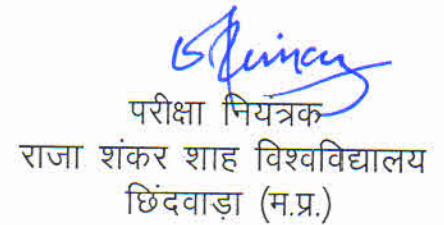 परीक्षा नियंत्रक
राजा शंकर शाह विश्वविद्यालय
छिंदवाड़ा (म.प्र.)